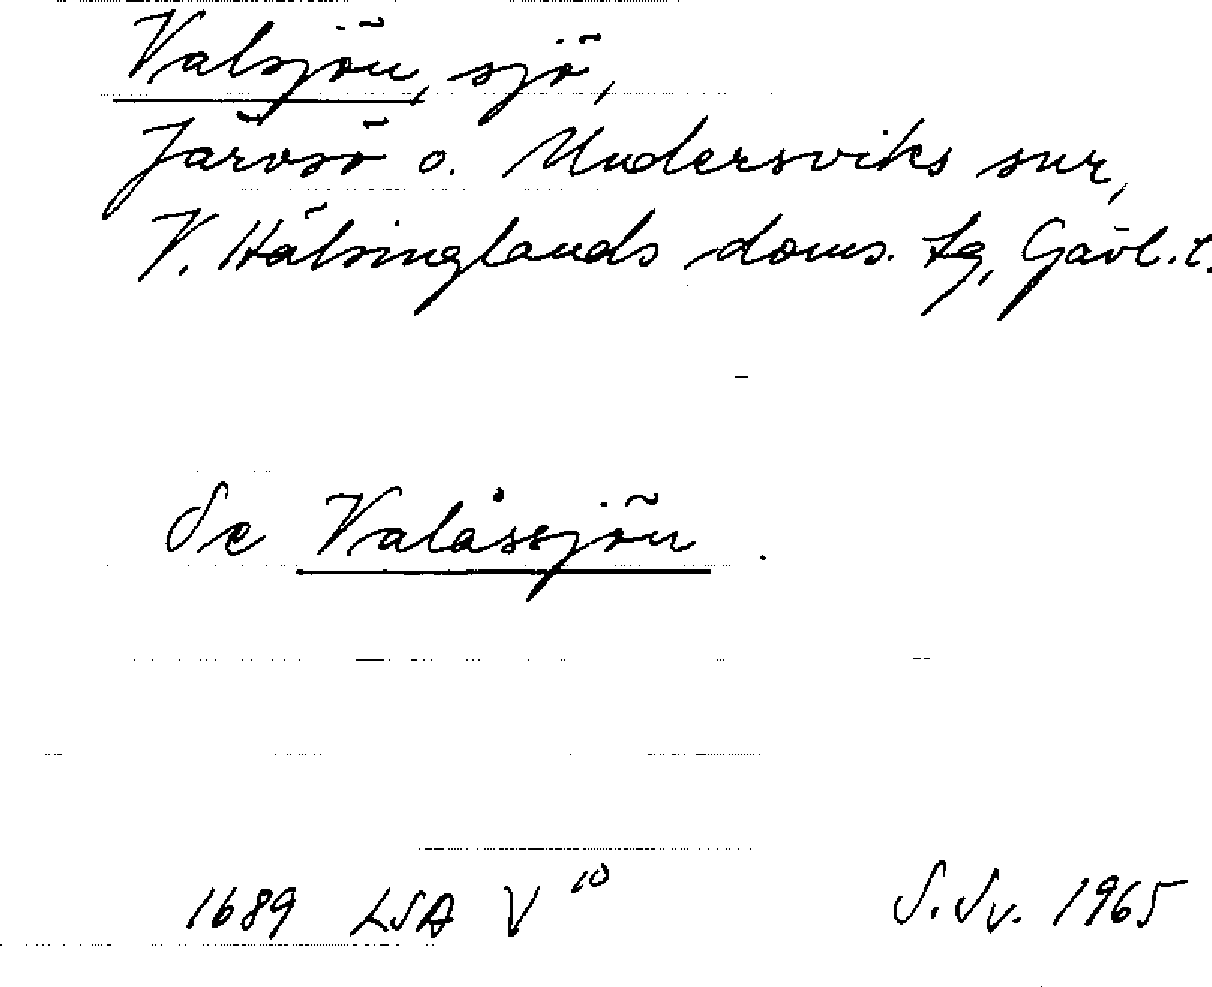 Valsjön, sjö,
Järvsö o. Undersviks snr,
V. Hälsinglands doms. tg, Gävl. l.
Se Valåssjön.
1689 LSA V 10 S. Sv. 1965